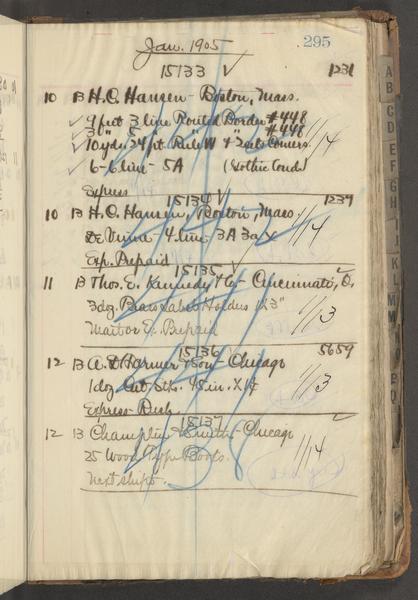 Jan. 1905 295
15133 ✓ 1231
10 B H.C. Hansen - Boston, Mass.
✓ 9 feet 3 line Routed Border #448
✓ 3 " 5 " " " #448
✓ 10 yds 24 pt. Rule W & 2 sets Corners 1/14
6 - 6 line - 5A (Gothic Cond)
Express
15134 ✓ 1239
10 B H.C. Hansen, Boston, Mass.
De Vinne - 4 line 3A 3a 1/14
Exp. Prepaid
15135 ✓
11 B Thos. E. Kennedy & Co - Cincinnati, O.
3 dz. Brass Label Holders 1/13
Mail or Ex. Prepaid
15136 5659
12 B A.D. Farmer & Son - Chicago
1 doz Cut Stks. 45 in. 1/13
Express Rush.
15137
12 B Champlin & Smith - Chicago
25 Wood Type 1/14
Next shipt.
A
B
C
D
E
F
G
H
I
J
K
L
M